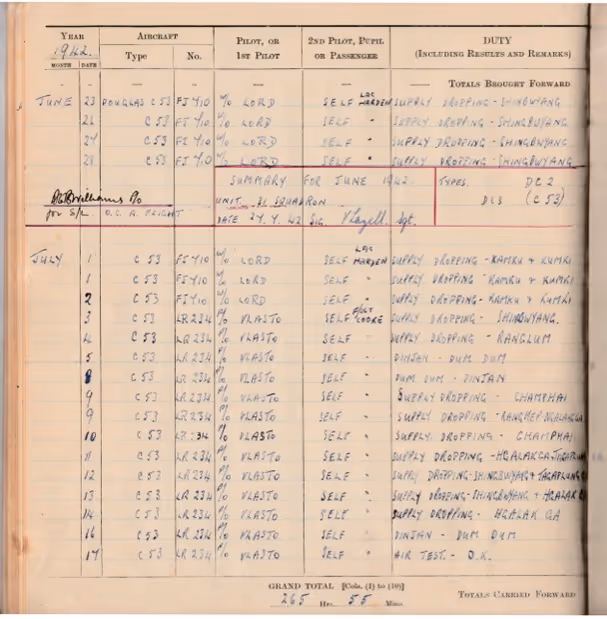 YEAR AIRCRAFT PILOT, OR 2ND PILOT, PUPIL DUTY
1942. Type No. 1ST PILOT OR PASSENGER (INCLUDING RESULTS AND REMARKS)
MONTH DATE
— — — — — — — TOTALS BROUGHT FORWARD
JUNE 23 DOUGLAS C53 FJ 710 W/O LORD SELF LAC MARDEN SUPPLY DROPPING - SHINGBWYANG
C 53 FJ 710 W/O LORD SELF " SUPPLY DROPPING - SHINGBWYANG
C 53 FJ 710 W/O LORD SELF " SUPPLY DROPPING - SHINGBWYANG
C 53 FJ 710 W/O LORD SELF " SUPPLY DROPPING - SHINGBWYANG
SUMMARY FOR JUNE 1942. TYPES. DC 2
Williams P/O UNIT. 31 SQUADRON. DLS (C 53)
for S/L. O.C. A. FLIGHT DATE SIG. Sgt.
JULY 1 C 53 FJ 710 W/O LORD SELF LAC MARDEN SUPPLY DROPPING - KAMKU + KUMKI
1 C 53 FJ 710 W/O LORD SELF " SUPPLY DROPPING - KAMKU + KUMKI
2 C 53 FJ 710 W/O LORD SELF " SUPPLY DROPPING - KAMKU + KUMKI
3 C 53 LR 234 P/O VLASTO SELF COOKE SUPPLY DROPPING - SHINGBWYANG.
4 C 53 LR 234 P/O VLASTO SELF " SUPPLY DROPPING - RANGLUM
5 C 53 LR 234 P/O VLASTO SELF " DINJAN - DUM DUM
8 C 53 LR 234 P/O VLASTO SELF " DUM DUM - DINJAN
9 C 53 LR 234 P/O VLASTO SELF " SUPPLY DROPPING - CHAMPHAI
9 C 53 LR 234 P/O VLASTO SELF " SUPPLY DROPPING -
10 C 53 LR 234 P/O VLASTO SELF " SUPPLY DROPPING - CHAMPHAI
11 C 53 LR 234 P/O VLASTO SELF " SUPPLY DROPPING -
12 C 53 LR 234 P/O VLASTO SELF " SUPPLY DROPPING - SHINGBWYANG +
13 C 53 LR 234 P/O VLASTO SELF " SUPPLY DROPPING - SHINGBWYANG + HGALAK GA
14 C 53 LR 234 P/O VLASTO SELF " SUPPLY DROPPING - HGALAK GA
16 C 53 LR 234 P/O VLASTO SELF " DINJAN - DUM DUM
17 C 53 LR 234 P/O VLASTO SELF " AIR TEST - O.K.
GRAND TOTAL [Cols. (1) to (10)]
265 Hrs. 55 Mins. TOTALS CARRIED FORWARD